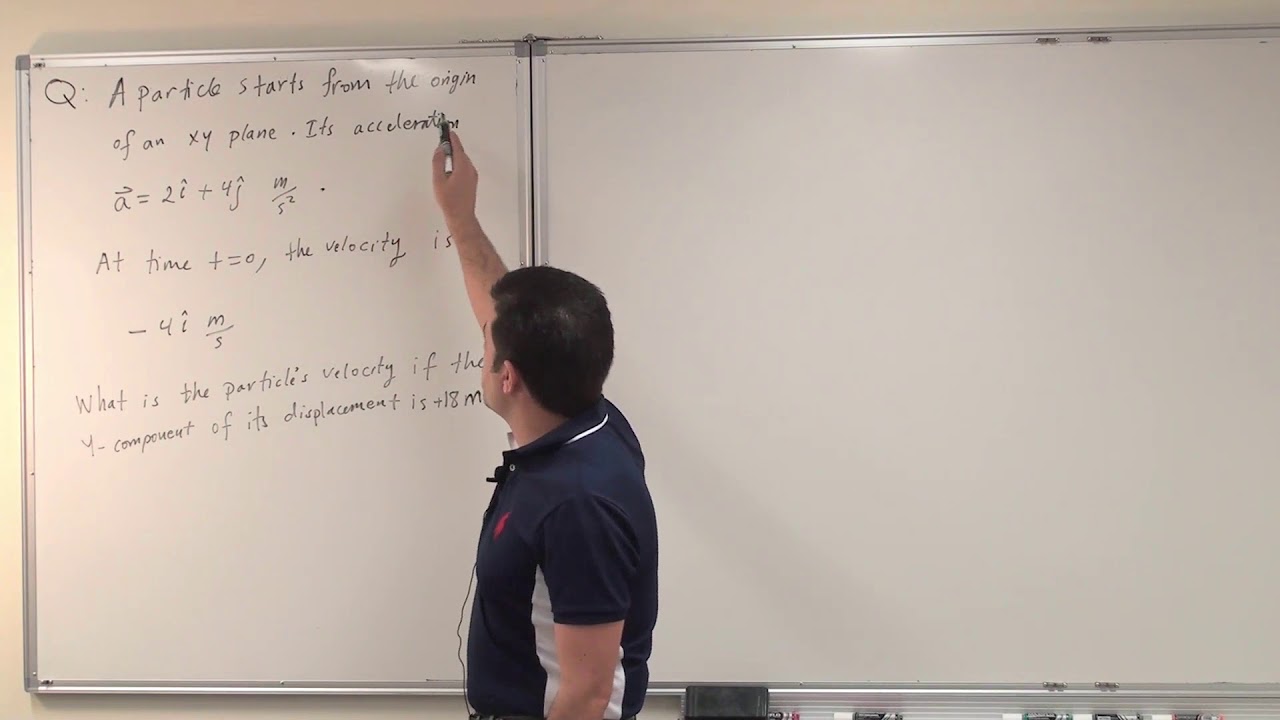 Q: A particle starts from the origin
of an xy plane. Its acceleration
a⃗ = 2î + 4ĵ m/s² .
At time t=0, the velocity is
- 4î m/s
What is the particle's velocity if the
Y-component of its displacement is +18m